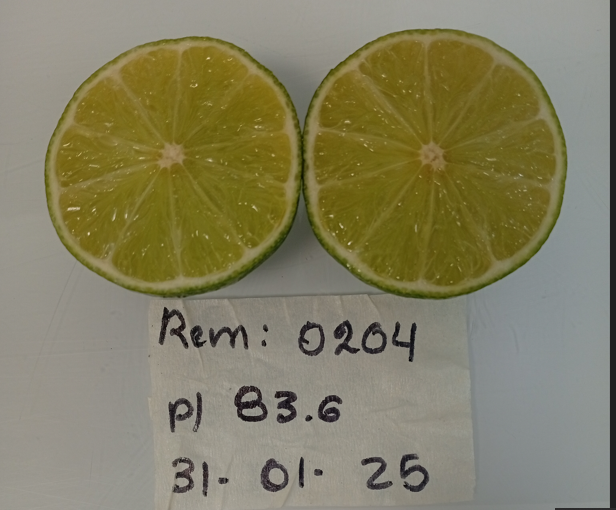 Rem: 0204
p) 83.6
31. 01. 25